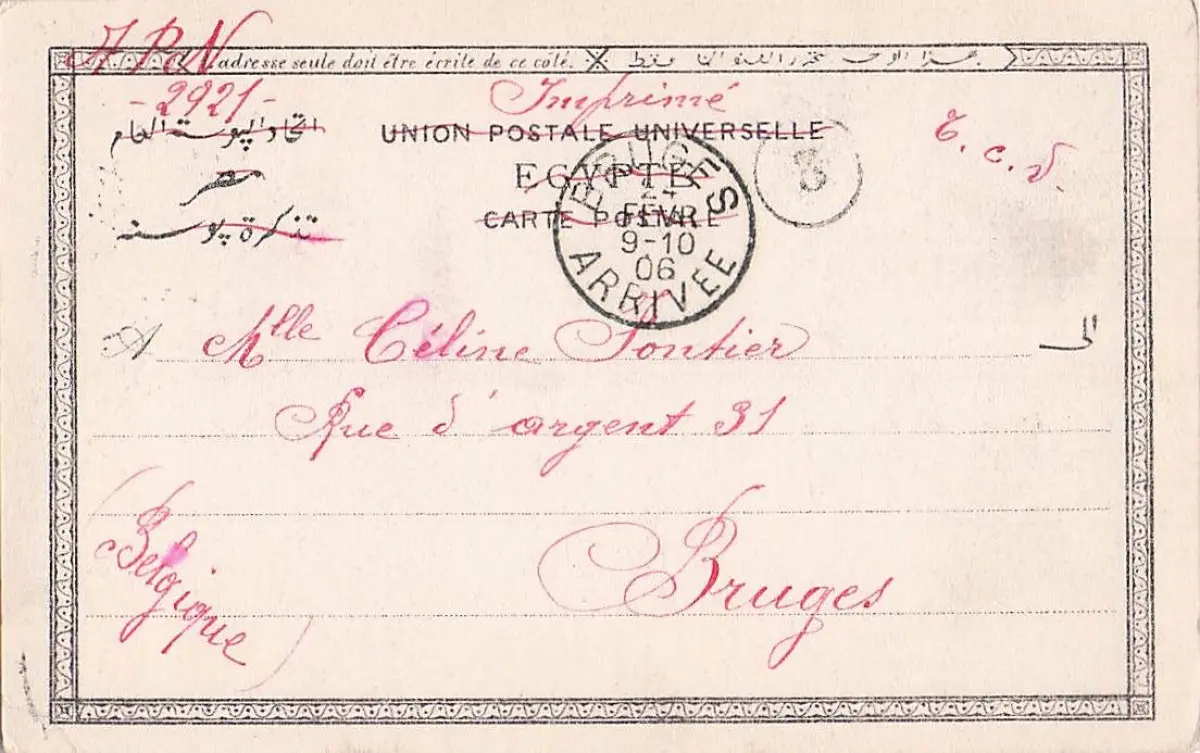 A.P.N
-2921-
adresse seule doit être écrite de ce côté.
Imprimé
اتحاد البوستة العام
UNION POSTALE UNIVERSELLE
T. c. v.
3
مصر
EGYPTE
تذكرة بوسته
CARTE POSTALE
BRUGES
21
FEVR
9-10
06
ARRIVEE
A Mlle Céline Pontier الى
Rue d'argent 31
Bruges
(Belgique)